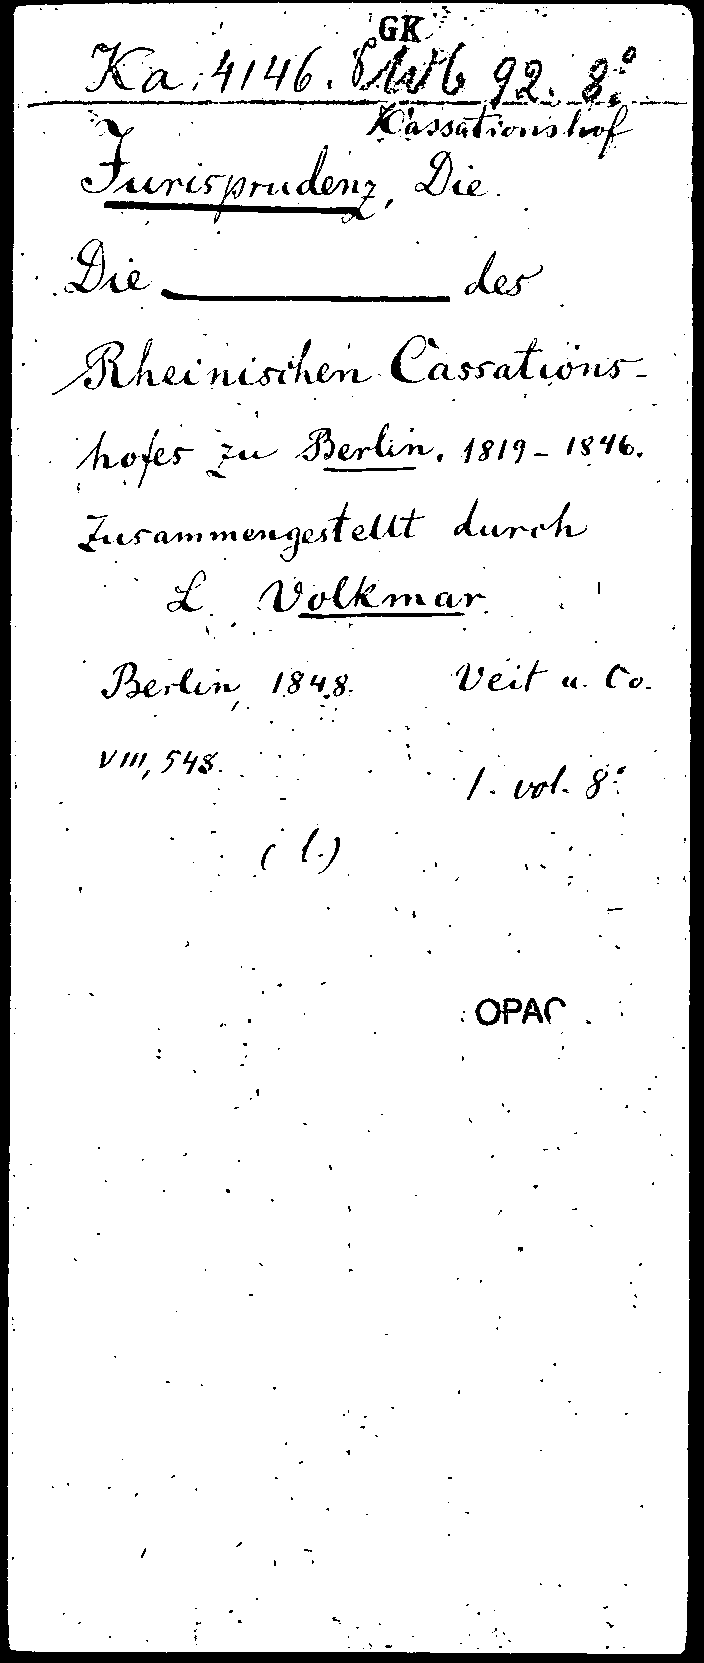 GK
Ka. 4146. 92. 8°
Kassationshof
Jurisprudenz, Die.
Die ———— des
Rheinischen Cassations-
hofes zu Berlin. 1819–1846.
Zusammengestellt durch
L. Volkmar.
Berlin, 1848. Veit u. Co.
VIII, 548.
1. vol. 8°
( l.)
OPAC